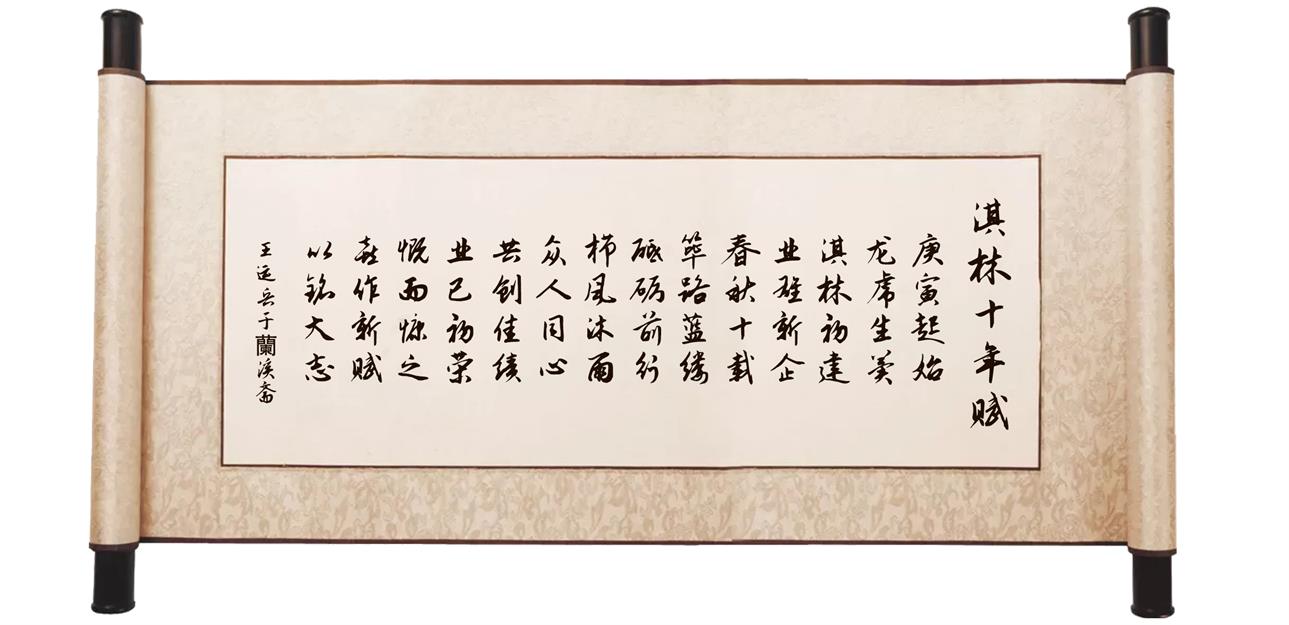 淇林十年赋
庚寅起始
龙虎生
淇林初建
业雄新企
春秋十载
筚路蓝缕
砥砺前行
栉风沐雨
众人同心
共创佳绩
业已初荣
慨而慷之
喜作新赋
以铭大志
王运兵于蘭溪斋